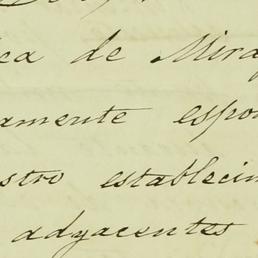 ca de Mira
amente espon
stro establecim
adyacentes